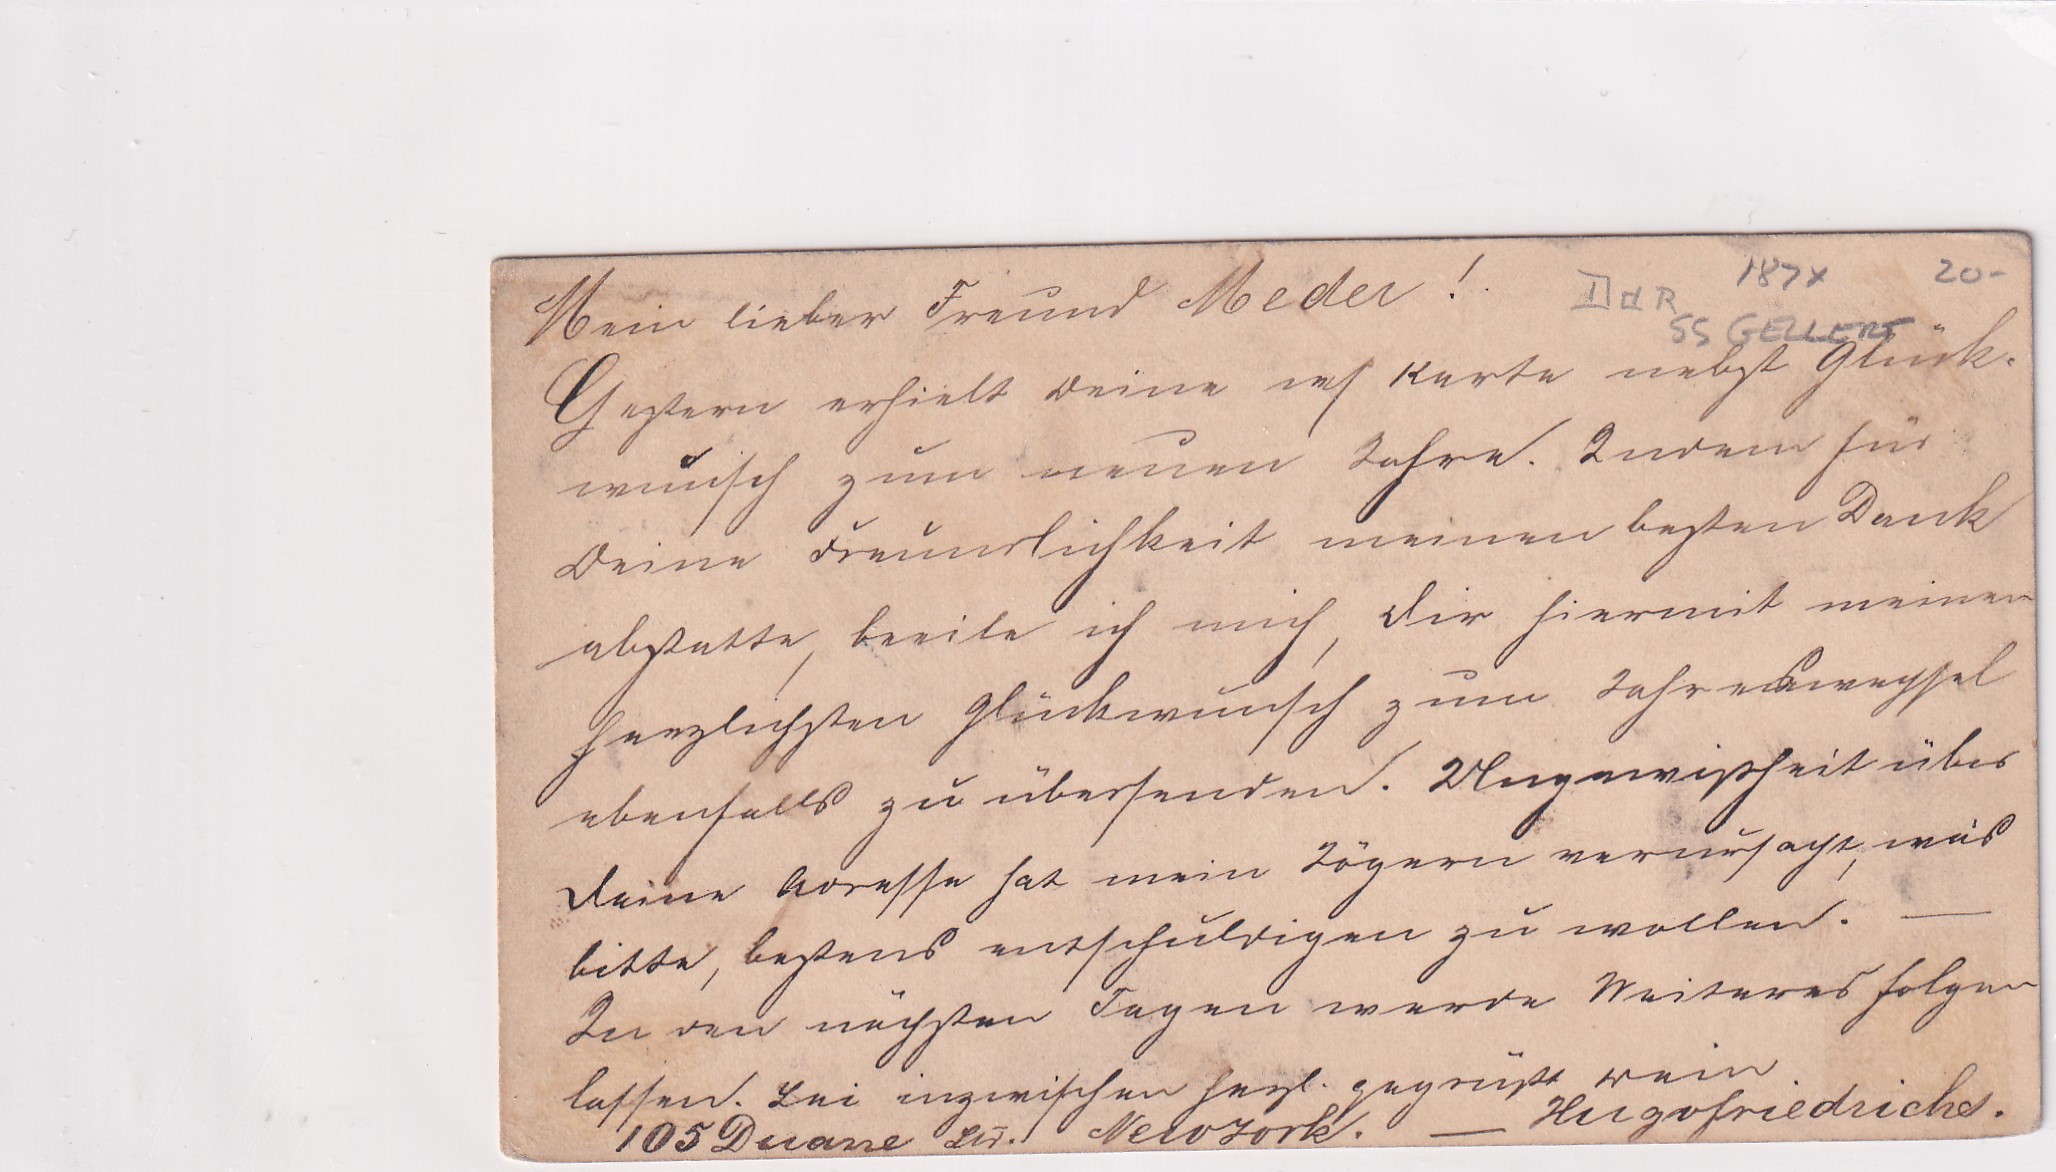 Mein lieber Freund Meder!
187x
20-
DdR
SS GELLERT
Gestern erhielt Deine Karte nebst Glück-
wunsch zum neuen Jahre. Indem für
Deine Freundlichkeit meinen besten Dank
abstatte, beeile ich mich, Dir hiermit meinen
herzlichsten Glückwunsch zum Jahreswechsel
ebenfalls zu übersenden. Ungewißheit über
Deine Adresse hat mein Zögern verursacht, was
bitte, bestens entschuldigen zu wollen. —
In den nächsten Tagen werde Weiteres folgen
lassen. Sei inzwischen herzl. gegrüßt v. Dein
105 Duane Str. New York. — Hugo Friedrichs.